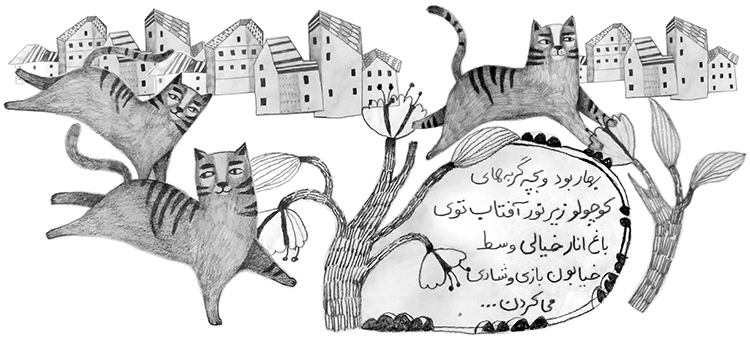 بهار بود و بچه گربه‌های
کوچولو زیر نور آفتاب توی
باغ انار خیالی وسط
خیابون بازی و شادی
می کردن ...